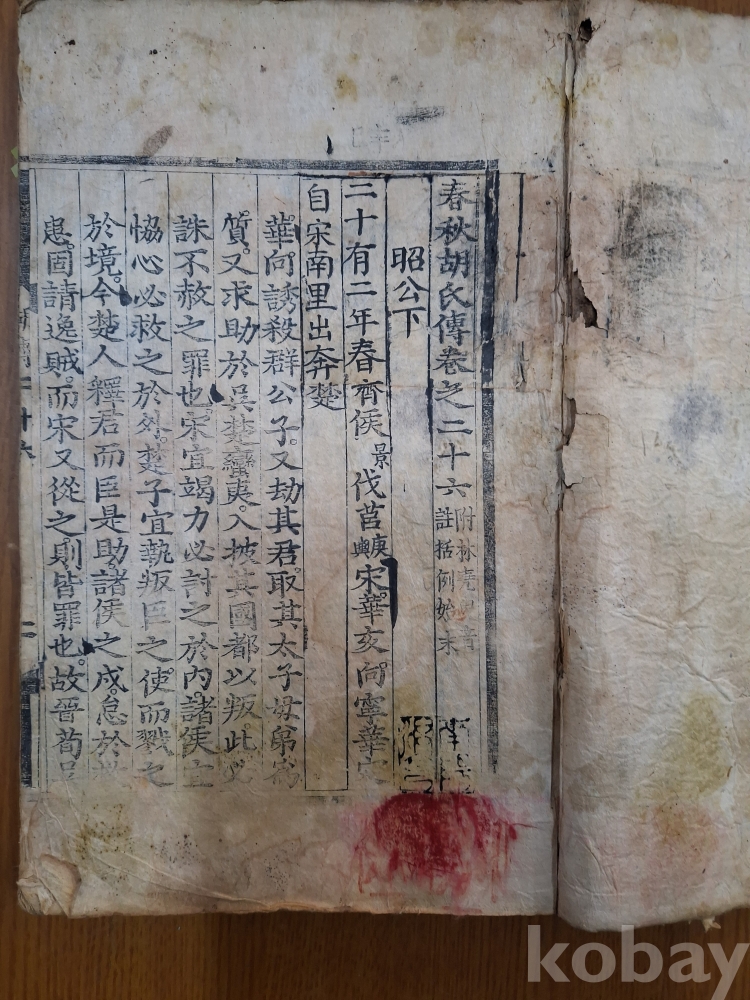 春秋胡氏傳卷之二十六 附林堯叟音註括例始末
昭公下
二十有二年春齊侯景伐莒庚輿宋華亥向寧華定
自宋南里出奔楚
華向誘殺群公子又劫其君取其太子母弟爲
質又求助於吳楚蠻夷入披其國都以叛此必
誅不赦之罪也宋宜竭力必討之於內諸侯宜
恊心必救之於外楚子宜執叛臣之使而戮之
於境今楚人釋君而臣是助諸侯之戍怠於
患固請逸賊而宋又從之則皆罪也故晉荀吳
kobay